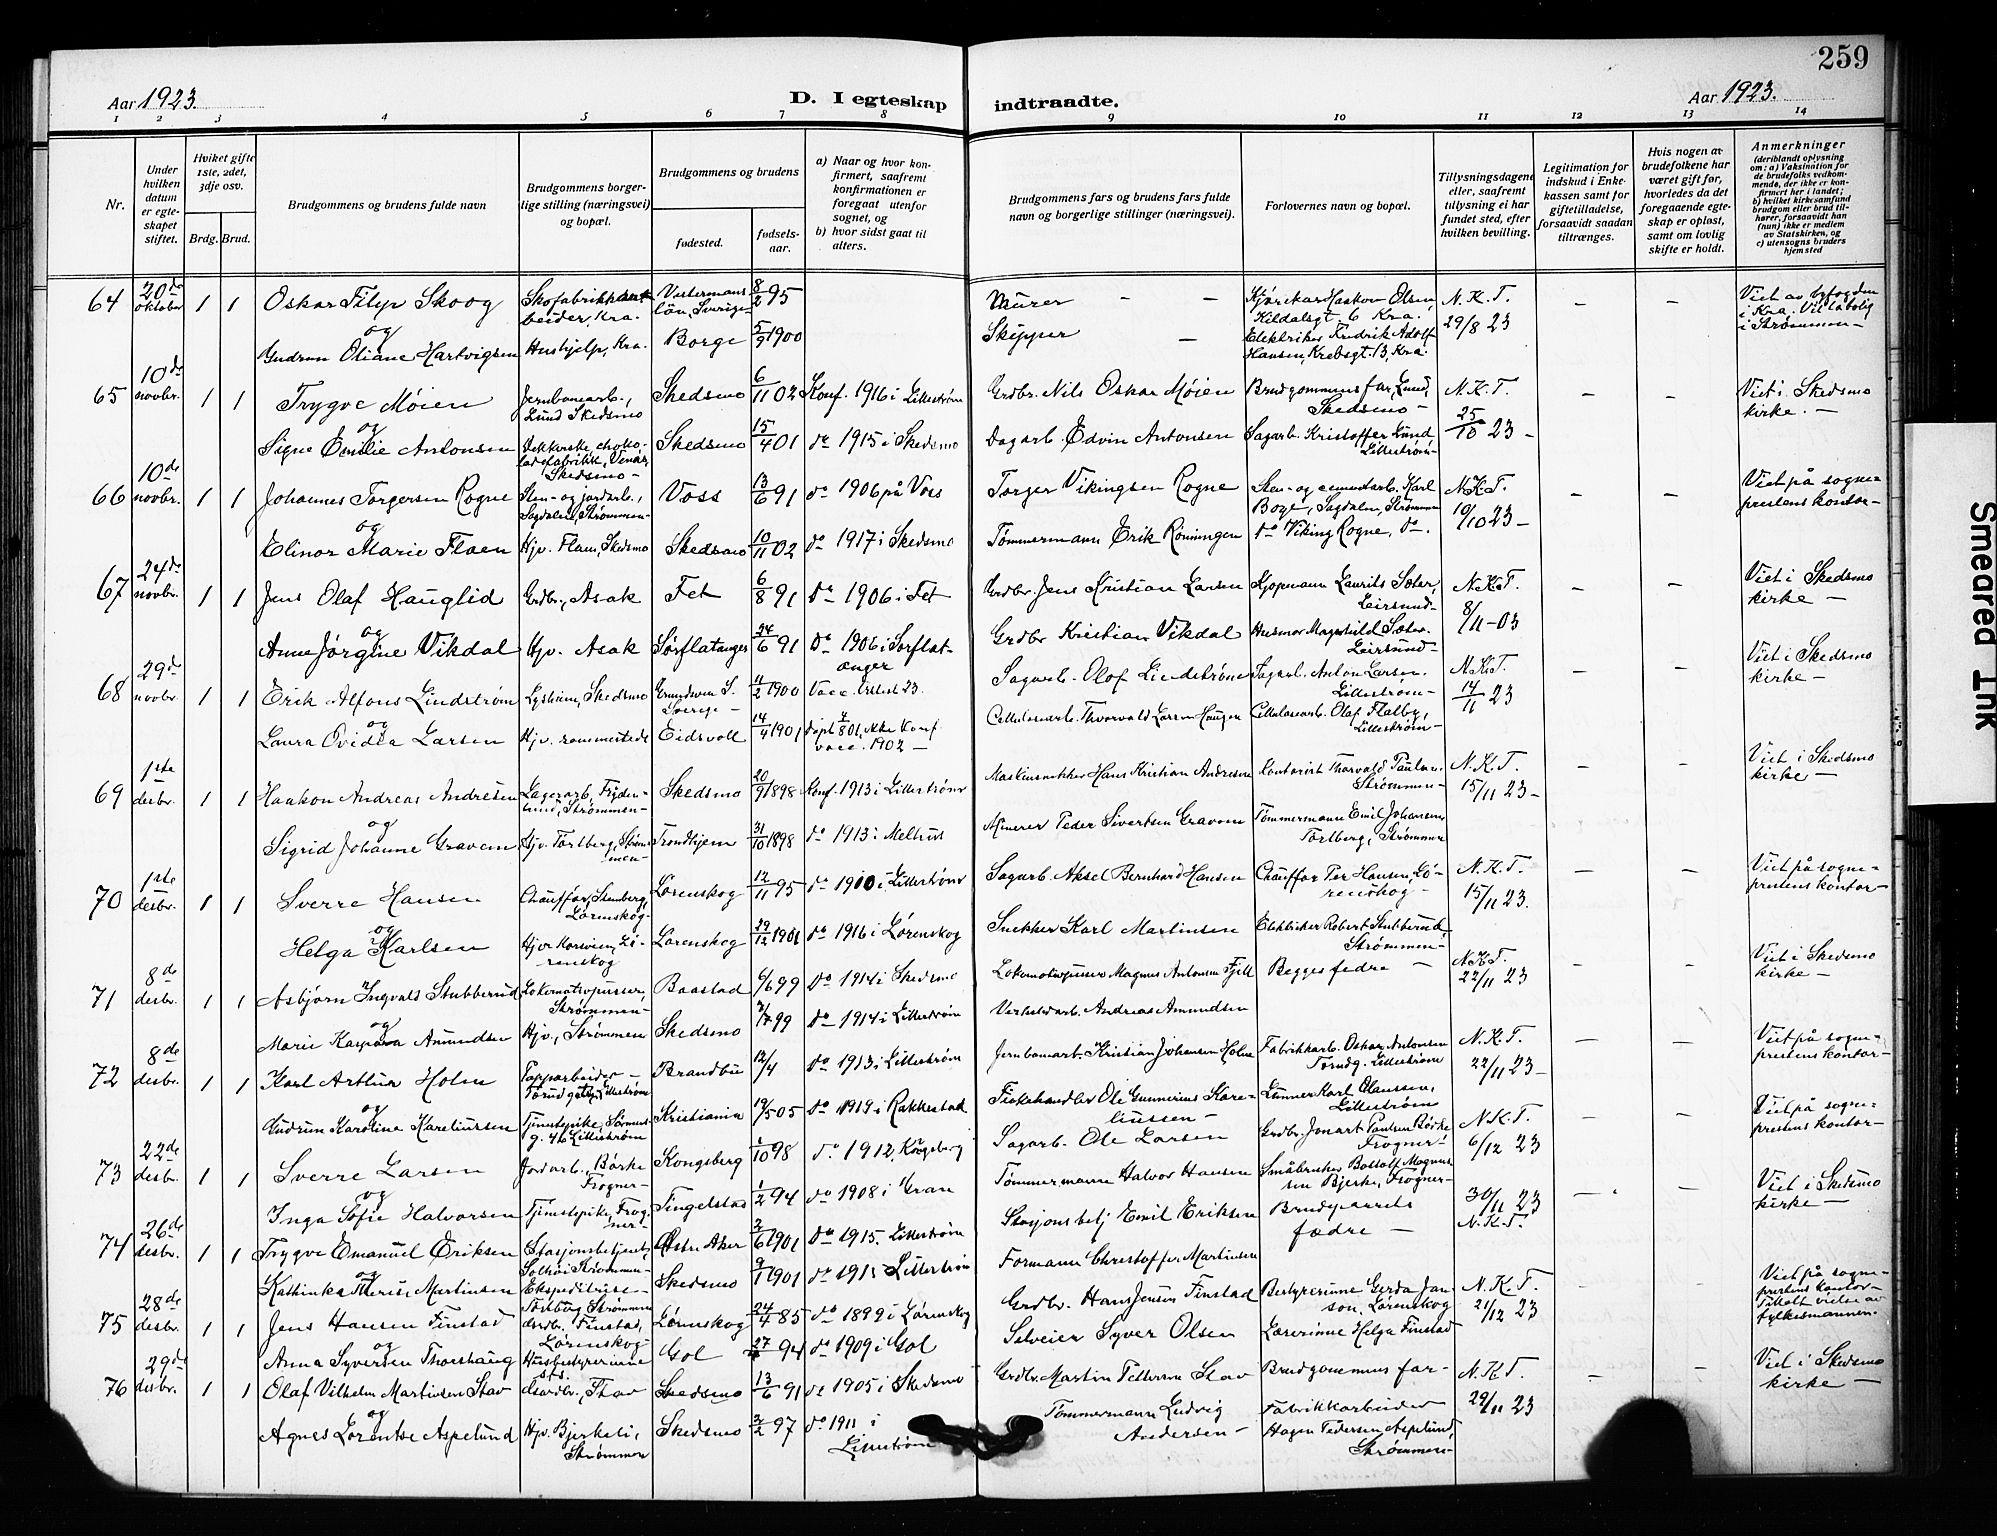 259
Aar 1923.
D. I egteskap indtraadte.
Aar 1923.
1 2 3 4 5 6 7 8 9 10 11 12 13 14
Nr.
Under hvilken datum er egteskapet stiftet.
Hviket gifte 1ste, 2det, 3dje osv.
Brdg. Brud.
Brudgommens og brudens fulde navn
Brudgommens borgerlige stilling (næringsvei) og bopæl.
Brudgommens og brudens
fødested.
fødselsaar.
a) Naar og hvor konfirmert, saafremt konfirmationen er foregaat utenfor sognet, og
b) hvor sidst gaat til alters.
Brudgommens fars og brudens fars fulde navn og borgerlige stillinger (næringsvei).
Forlovernes navn og bopæl.
Tillysningsdagene eller, saafremt tillysning ei har fundet sted, efter hvilken bevilling.
Legitimation for indskud i Enkekassen samt for giftetilladelse, forsaavidt saadan tiltrænges.
Hvis nogen av brudefolkene har været gift før, hvorledes da det foregaaende egteskap er opløst, samt om lovlig skifte er holdt.
Anmerkninger
(deriblandt oplysning om: a) Vaksination for de brudefolks vedkommende, der ikke er konfirmert her i landet; b) hvilket kirkesamfund brudgom eller brud tilhører, forsaavidt han (hun) ikke er medlem av Statskirken, og c) utensogns bruders hjemsted
64 20de oktober 1 1 Oskar Filip Skoog Skofabrikkarbeider, Kra. Vestermanslön, Sverige 8/2 95 Murer – – Kjørekar Haakon Olsen, Kildalsgt. 6 Kra. N.K.T. 29/8 23 – – Viet av byfogden i Kra. Vil ta bolig i Strømmen –
og
Gudrun Oliane Hartvigsen Hushjelp, Kra. Borge 5/9 1900 Skipper – Elektriker Fredrik Adolf Hansen, Krebsgt. 13, Kra.
65 10de novbr. 1 1 Trygve Moien Jernbanearb., Lund Skedsmo Skedsmo 6/11 02 Konf. 1916 i Lillestrøm Grdbr. Nils Oskar Moien Brudgommens far, Lund, Skedsmo – N.K.T. 25/10 23 – – – Viet i Skedsmo kirke. –
og
Signe Emilie Antonsen Skedsmo 15/4 01 do 1915 i Skedsmo Dagarb. Edvin Antonsen Sagarb. Kristoffer Lund, Lillestrøm –
66 10de novbr. 1 1 Johannes Torgersen Rogne Sten- og jordarb., Sagdalen, Strømmen – Voss 13/6 91 do 1906 på Voss Torger Vikingsen Rogne Sten- og cementarb. Karl Boge, Sagdalen, Strømmen N.K.T. 10/10 23 – – – Viet på sogneprestens kontor –
og
Elinor Marie Flaen Hjv. Flaen, Skedsmo Skedsmo 10/11 02 do 1917 i Skedsmo Tømmermann Erik Rønningen do Viking Rogne, do.
67 24de novbr. 1 1 Jens Olaf Hauglid Grdbr., Asak Fet 6/8 91 do 1906 i Fet Grdbr. Jens Kristian Larsen Kjøpmann Laurits Sæter, Leirsund – N.K.T. 8/11 – 03 – – Viet i Skedsmo kirke –
og
Anne Jørgine Vikdal Hjv. Asak Sørflatanger 24/6 91 do 1906 i Sørflatanger Grdbr Kristian Vikdal Husmor Magnhild Sæter. Leirsund –
68 29de novbr. 1 1 Erik Alfons Lindstrøm Lysheim, Skedsmo Sverige – 1900 Sagarb. Olof Lindstrøm Sagarb. Anton Larsen. Lillestrøm – N.K.T. 14/11 23 – – Viet i Skedsmo kirke –
og
Laura Ovidia Larsen Hjv. sammesteds Eidsvoll 14/4 1901 ikke Konf vacc. 1902 – Cellulosearb. Thorvald Larsen Haugen Cellulosearb. Olaf Flatby, Lillestrøm –
69 1ste desbr. 1 1 Haakon Andreas Andresen Lagerarb, Frydenlund, Strømmen – Skedsmo 20/9 1898 Konf. 1913 i Lillestrøm Maskinsnekker Hans Kristian Andresen Kontorist Thorvald Paulsen Strømmen – N.K.T. 15/11 23 – – – Viet i Skedsmo kirke –
og
Sigrid Johanne Gravem Hjv. Torlberg, Strømmen – Trondhjem 31/10 1898 do 1913 i Melhus Minerer Peder Sivertsen Gravem Tømmermann Emil Johansen Torlberg, Strømmen
70 1ste desbr. 1 1 Sverre Hansen Chauffør, Stenberg, Lørenskog – Lørenskog 12/11 95 do 1910 i Lillestrøm Sagarb. Aksel Bernhard Hansen Chauffør Per Hansen, Lørenskog – N.K.T. 15/11 23. – – Viet på sogneprestens kontor –
og
Helga Karlsen Lørenskog 29/12 1901 do 1916 i Lørenskog Snekker Karl Martinsen Elektriker Robert Stubberud, Strømmen –
71 8de desbr. 1 1 Asbjørn Ingvald Stubberud Lokomotivpusser, Strømmen – Baastad 6/6 99 do 1914 i Skedsmo Lokomotivpusser Magnus Antonsen Fjell Begges fedre – N.K.T. 22/11 23 – – Viet i Skedsmo kirke –
og
Marie Kaspara Amundsen Hjv., Strømmen Skedsmo 99 do 1914 i Lillestrøm Verkstedarb. Andreas Amundsen
72 8de desbr. 1 1 Karl Arthur Holm Brandbu 12/4 do 1913 i Lillestrøm Jernbanearb. Kristian Johansen Holm Fabrikkarb. Oskar Antonsen Torudg. Lillestrøm N.K.T. 22/11 23 – – – Viet på sogneprestens kontor –
og
Gudrun Karoline Kareliussen Tjenestepike, Lillestrøm Kristiania 19/5 05 do 1919 i Rakkestad Fiskehandler Ole Gunnerius Kareliussen – Gunner Karl Olaussen, Lillestrøm
73 22de desbr. 1 1 Sverre Larsen Jordarb., Børke Frogner – Kongsberg 1/10 98 do 1912, Kongsberg Sagarb. Ole Larsen Grdbr. Jonart Paulsen Børke Frogner N.K.T. 6/12 23 Viet på sogneprestens kontor –
og
Inga Sofie Halvorsen Tjenestepike, Frogner – Tingelstad 1/2 94 do 1908 i Gran Tømmermann Halvor Hansen Småbruker Bottolf Magnussen Bjerke, Frogner –
74 26de desbr. 1 1 Trygve Emanuel Eriksen Stasjonsbetjent, Solhøi Strømmen – Østre Aker 2/6 1901 do 1915. Lillestrøm Stasjonsbetj Emil Eriksen Brudeparrets fædre – 30/11 23 N.K.T. – – Viet i Skedsmo kirke –
og
Kathinka Therese Martinsen Ekspeditrise – Torlberg Strømmen Skedsmo 9/1 1901 do 1915 Lillestrøm Formann Christoffer Martinsen
75 28de desbr. 1 1 Jens Hansen Finstad Gardbr. Finstad, Lørenskog Lørenskog 24/4 85 do 1899 i Lørenskog Grdbr. Hans Jensen Finstad Bestyrerinne Gerda Janson, Lørenskog N.K.T. 21/12 23 – – Viet på sogneprestens kontor – Tillatt vielse av fylkesmannen.
og
Anna Syversen Thorshaug Husbestyrerinne sts. Gol 27 94 do 1909 i Gol Selveier Syver Olsen Lærerinne Helga Finstad
76 29de desbr. 1 1 Olaf Vilhelm Martinsen Stav Gardbr., Stav Skedsmo 13/6 91 do 1905 i Skedsmo Grdbr. Martin Pettersen Stav Brudgommens far – N.K.T. 29/11 23 – – Viet i Skedsmo kirke –
og
Agnes Lorentse Aspelund Hjv. Bjerkeli, Strømmen Skedsmo 2/2 97 do 1911 i Lillestrøm Tømmermann Ludvig Andersen – Fabrikkarbeider Hagen Pedersen Aspelund, Strømmen –
Smeared Ink